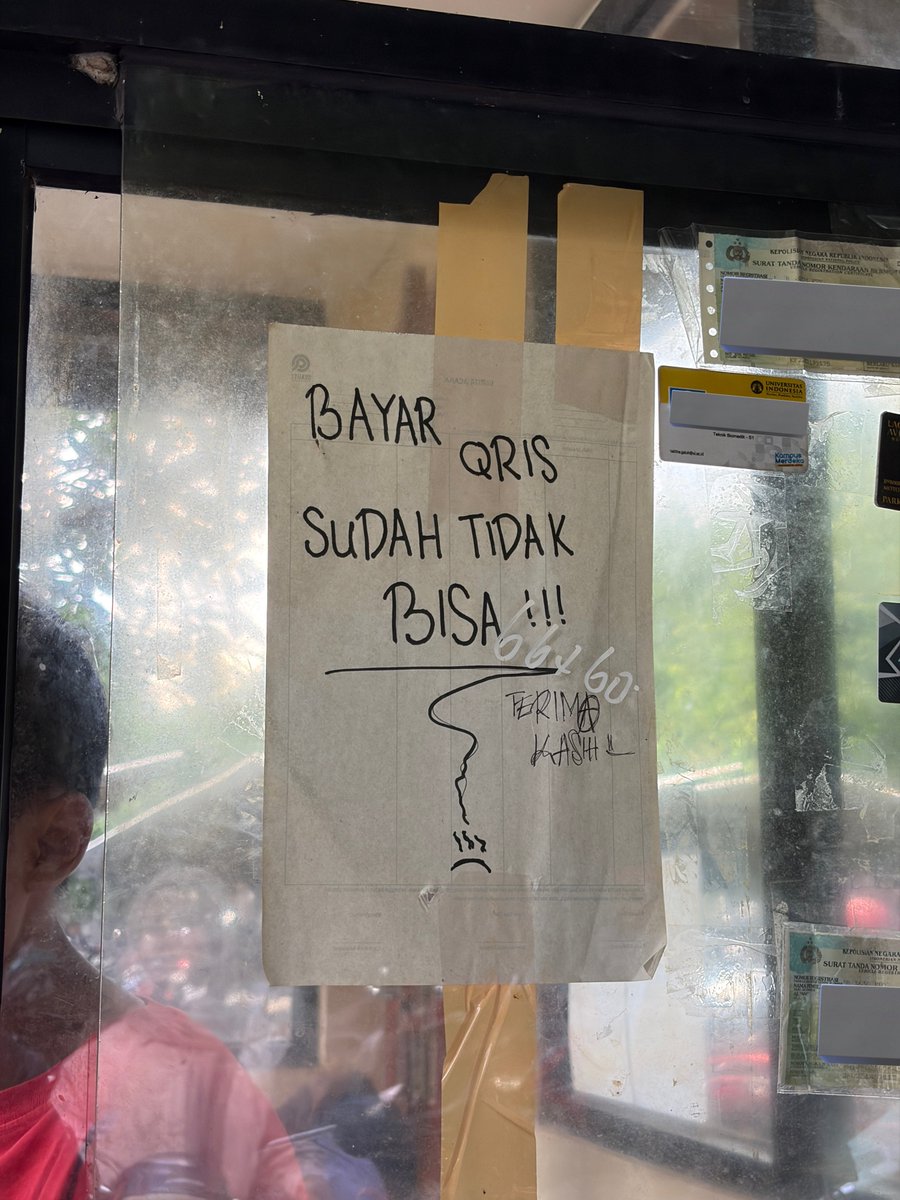 BAYAR
QRIS
SUDAH TIDAK
BISA !!!
66x60.
TERIMA
KASIH
KEPOLISIAN NEGARA REPUBLIK INDONESIA
SURAT TANDA NOMOR KENDARAAN BERMOTOR
NOMOR REGISTRASI
UNIVERSITAS
INDONESIA
Teknik Biomedik - S1
Kampus
Merdeka
BERITA ACARA
KEPOLISIAN NEGARA
SURAT TANDA NOMOR
NOMOR REGISTRASI